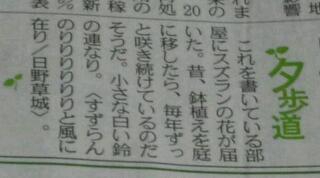 夕歩道
これを書いている部
屋にスズランの花が届
いた。昔、鉢植えを庭
に移したら、毎年ずっ
と咲き続けているのだ
そうだ。小さな白い鈴
の連なり。〈すずらん
のりりりりりりと風に
在り／日野草城〉。